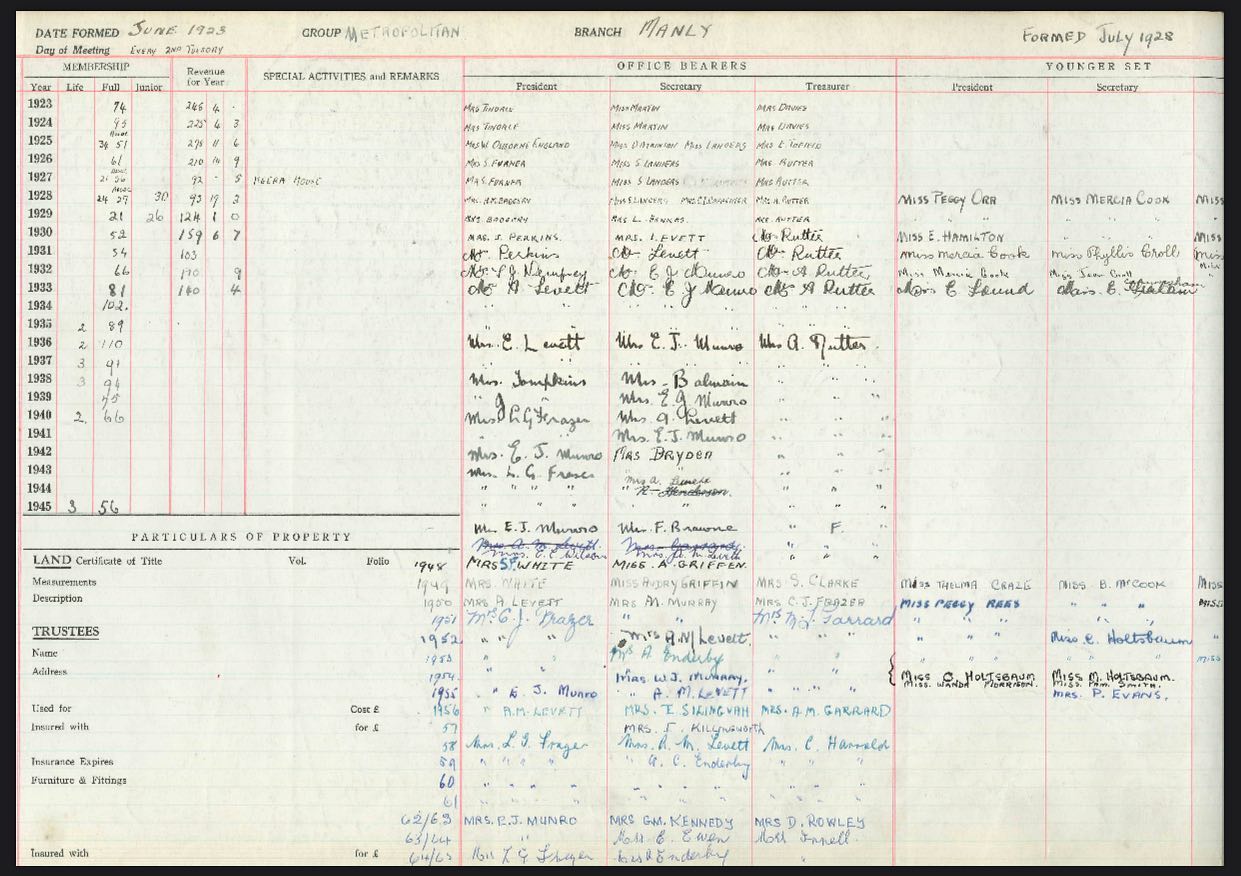 DATE FORMED JUNE 1923 GROUP METROPOLITAN BRANCH MANLY FORMED JULY 1928
Day of Meeting EVERY 2ND TUESDAY
MEMBERSHIP Revenue for Year SPECIAL ACTIVITIES and REMARKS OFFICE BEARERS YOUNGER SET
Year Life Full Junior President Secretary Treasurer President Secretary
1923 74 246 4 - MRS TINDALE MISS MARTIN MRS DAVIES
1924 95 225 4 3 MRS TINDALE MISS MARTIN MRS DAVIES
1925 34 51 275 11 6 MRS W. OSBORNE ENGLAND MISS LANDERS MRS E.
1926 61 210 14 9 MRS S. FURNER MISS S LANDERS MRS. RUTTER
1927 21 56 92 - 5 KEERA HOUSE MRS. FURNER MISS S LANDERS MRS RUTTER
1928 24 27 30 93 19 3 MRS. BADGERY MISS S LANDERS MRS A. RUTTER MISS PEGGY ORR MISS MERCIA COOK MISS
1929 21 26 124 1 0 MRS. BADGERY MRS L. MRS. RUTTER " " " "
1930 52 159 6 7 MRS. J. PERKINS. MRS. LEVETT Mrs Rutter MISS E. HAMILTON " " " MISS
1931 54 103 Mrs Perkins Mrs Levett Mrs Rutter Miss Mercia Cook Miss Phyllis Croll Miss
1932 66 170 9 Mrs L J Dempsey Mrs E J Munro Mrs A Rutter Miss Mercia Cook Miss Jean Croll
1933 81 140 4 Mrs A Levett Mrs E J Munro Mrs A Rutter Miss E Lound Miss E.
1934 102. " " " " " "
1935 2 89
1936 2 110 Mrs. E. Levett Mrs E. J. Munro Mrs A. Rutter.
1937 3 91 " " " " " "
1938 3 94 Mrs. Tompkins Mrs. Balmain " "
1939 45 " " Mrs. E J Munro " "
1940 2. 66 Mrs L G Frazer Mrs. A. Levett " "
1941 Mrs. E.J. Munro " "
1942 Mrs. E. J. Munro MRS BRYDEN " "
1943 Mrs. L. G. Fraser " " " "
1944 " " " " Mrs A. Levett " "
R. Henderson.
1945 3 56 " " " " "
Mrs E.J. Munro Mrs. F. Browne " F.
PARTICULARS OF PROPERTY
Mrs. A. M. Levett. " " "
LAND Certificate of Title Vol. Folio 1948 MRS S.P. WHITE MISS. A. GRIFFEN.
Measurements 1949 MRS. WHITE MISS AUDRY GRIFFIN MRS S. CLARKE MISS THELMA CRAZE MISS B. McCOOK MISS
Description 1950 MRS A LEVETT MRS M. MURRAY MRS C.J. FRAZER MISS PEGGY REES " " " MISS
1951 Mrs C. J. Frazer " " Mrs M. J. Garrard " "
TRUSTEES
1952 " " " Mrs A M Levett. " " " " " Miss. C. Holtsbaum "
Name 1953 " " Mrs A Enderby " " " " MISS
Address 1954 " " MRS. W.J. MURRAY. " " MISS C. HOLTSBAUM MISS M. HOLTSBAUM.
MISS. WANDA MORRISON. MISS. PAM. SMITH.
1955 " E. J. Munro " A. M. LEVETT " " " MRS. P. EVANS.
Used for Cost £ 1956 " A.M. LEVETT MRS. E SILINGVAH MRS. A.M. GARRARD
Insured with for £ 57 MRS. E. KILLINGSWORTH
58 Mrs. L. G. Frazer Mrs. A. M. Levett Mrs. C. Harrald
Insurance Expires 59 " " " " " A. C. Enderby " " "
Furniture & Fittings 60 " " " " " " "
61 " " " " " " "
62/63 MRS. E.J. MUNRO MRS GM. KENNEDY MRS D. ROWLEY
63/64 " Mrs E. Ewen Mrs
Insured with for £ 64/65 Mrs L G Frazer Mrs A Enderby "